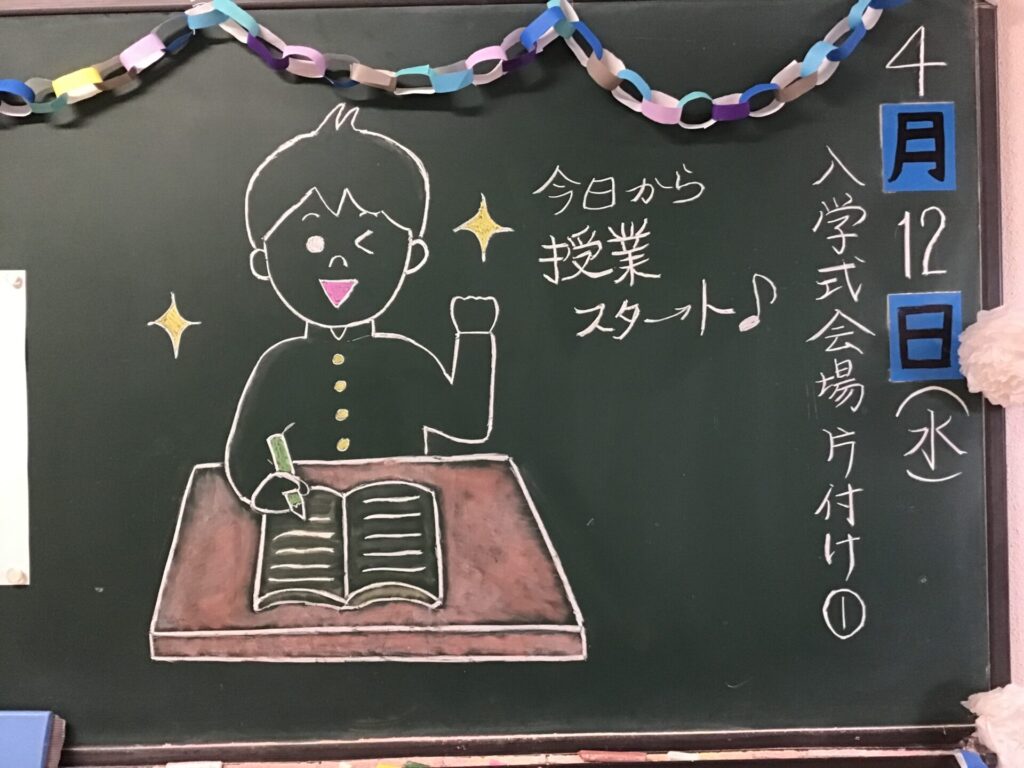 4月12日(水)
入学式会場片付け①
今日から
授業
スタート♪